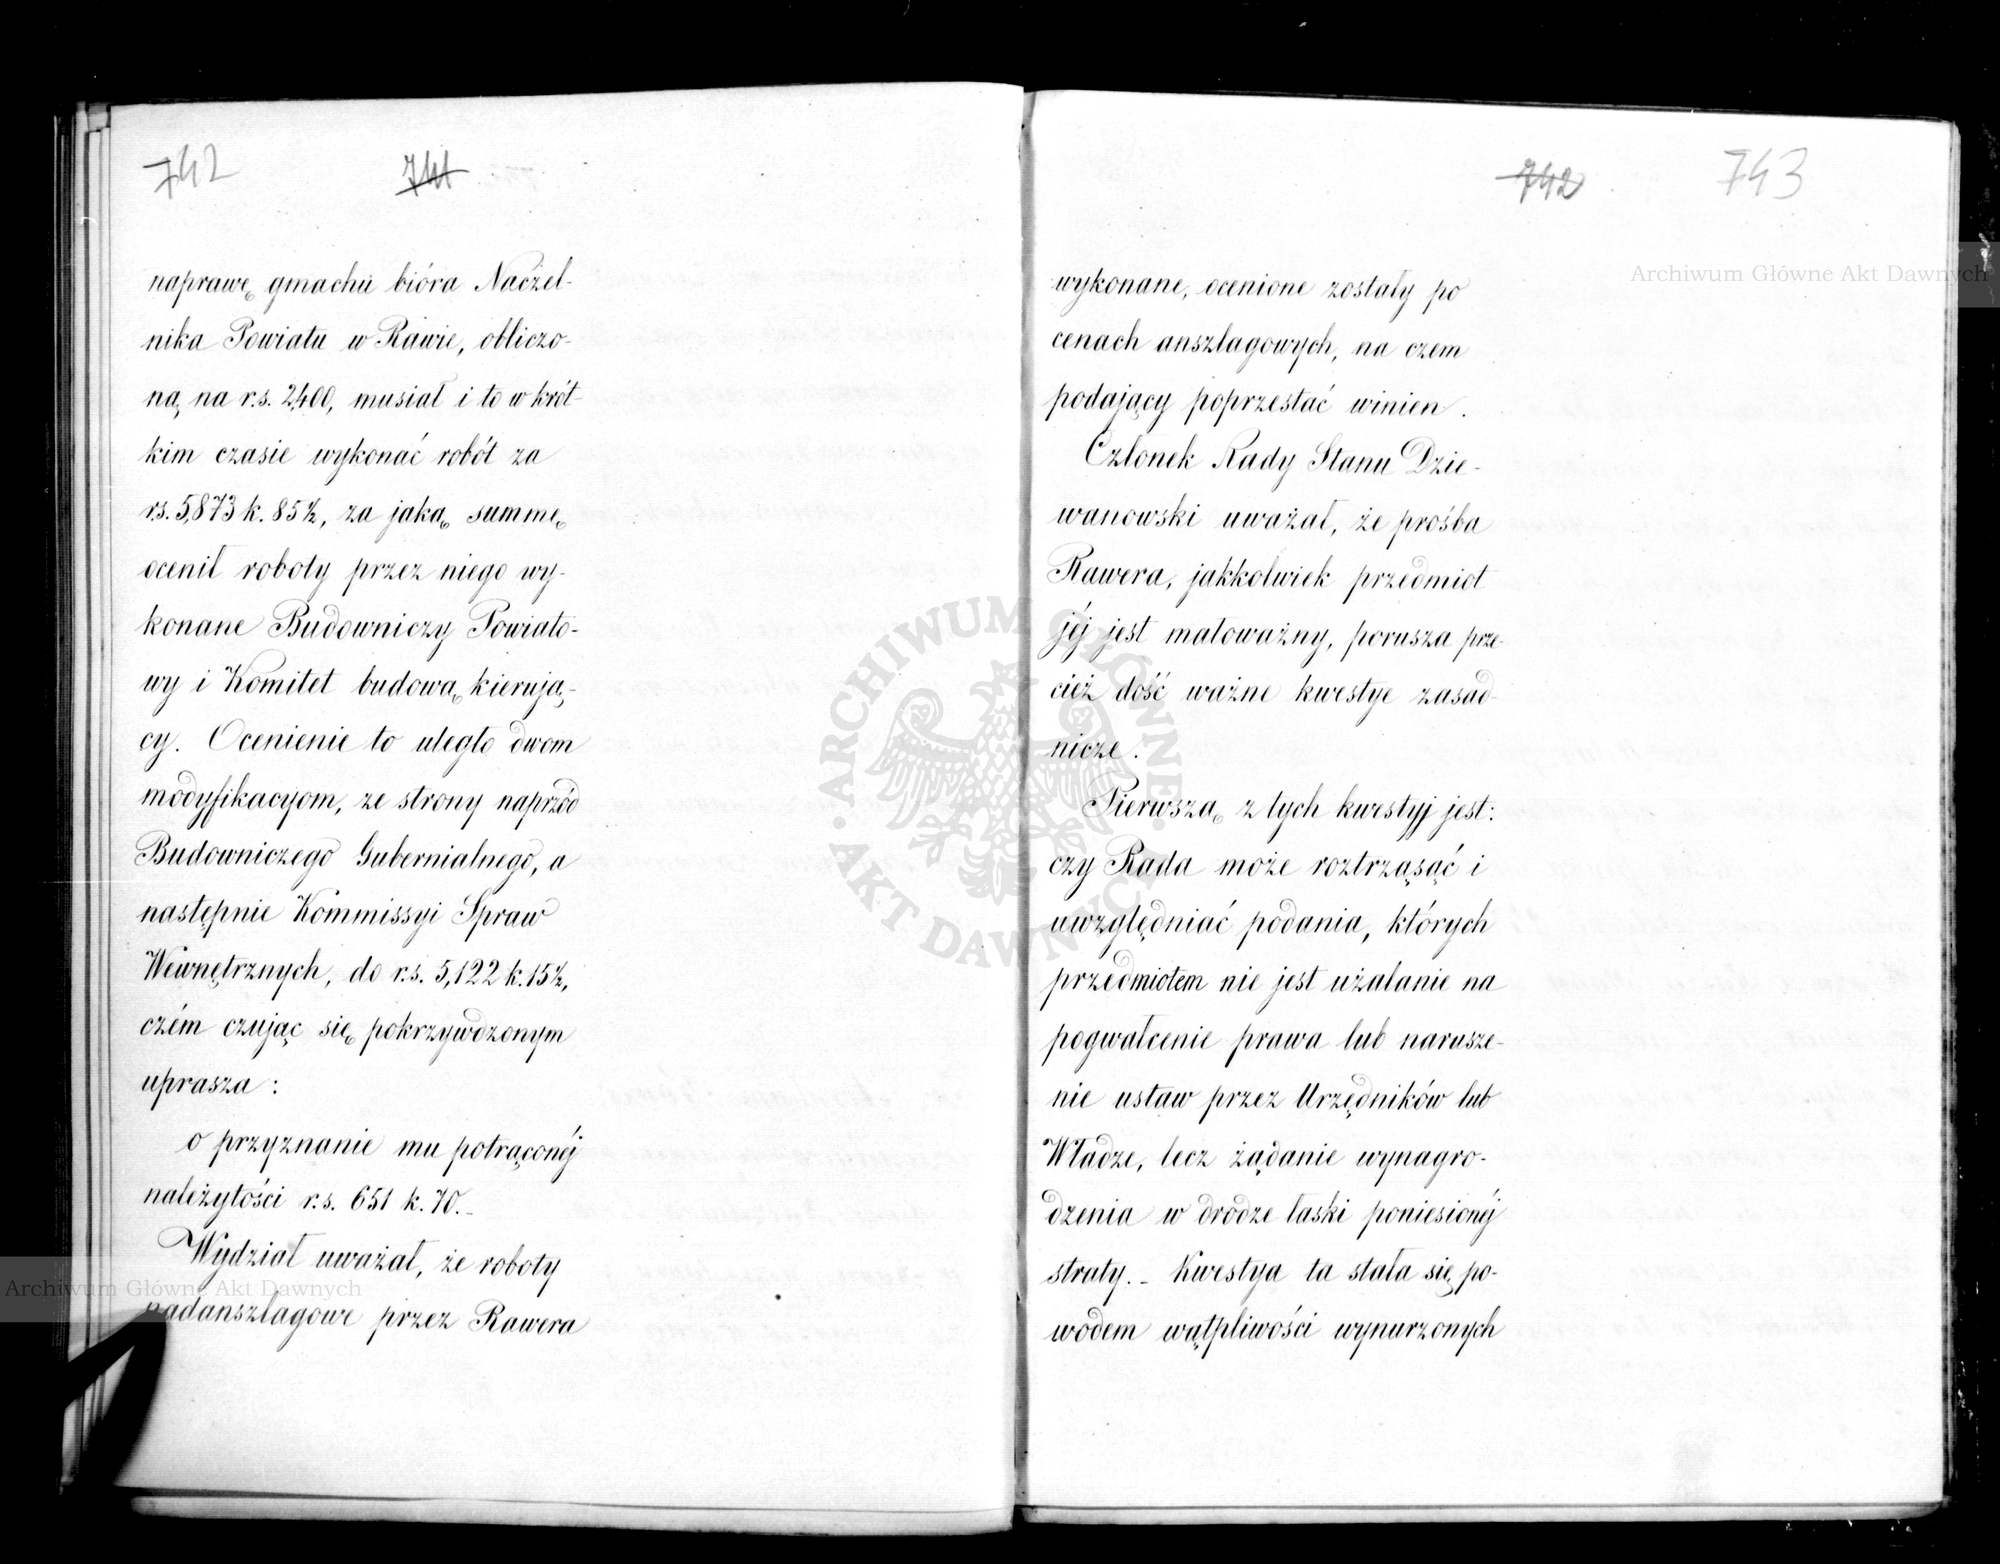 742
741
naprawę gmachu bióra Naczel-
nika Powiatu w Rawie, obliczo-
ną na r.s. 2,400, musiał i to w krót-
kim czasie wykonać robót za
r.s. 5,873 k. 85½, za jaką summę
ocenił roboty przez niego wy-
konane Budowniczy Powiato-
wy i Komitet budową kierują-
cy. Ocenienie to uległo dwom
modyfikacyom, ze strony naprzód
Budowniczego Gubernialnego, a
następnie Kommissyi Spraw
Wewnętrznych, do r.s. 5,122 k. 15½,
czém czując się pokrzywdzonym
uprasza:
o przyznanie mu potrąconéj
należytości r.s. 651 k. 70.-
Wydział uważał, że roboty
nadanszlagowe przez Rawera
742
743
wykonane, ocenione zostały po
cenach anszlagowych, na czem
podający poprzestać winien.
Członek Rady Stanu Dzie-
wanowski uważał, że prośba
Rawera, jakkolwiek przedmiot
jéj jest małoważny, porusza prze-
cież dość ważne kwestye zasad-
nicze.
Pierwszą z tych kwestyj jest:
czy Rada może roztrząsąć i
uwzględniać podania, których
przedmiotem nie jest użalanie na
pogwałcenie prawa lub narusze-
nie ustaw przez Urzędników lub
Władze, lecz żądanie wynagro-
dzenia w drodze łaski poniesionéj
straty.- Kwestya ta stała się po-
wodem wątpliwości wynurzonych
Archiwum Główne Akt Dawnych
Archiwum Główne Akt Dawnych
ARCHIWUM GŁÓWNE AKT DAWNYCH